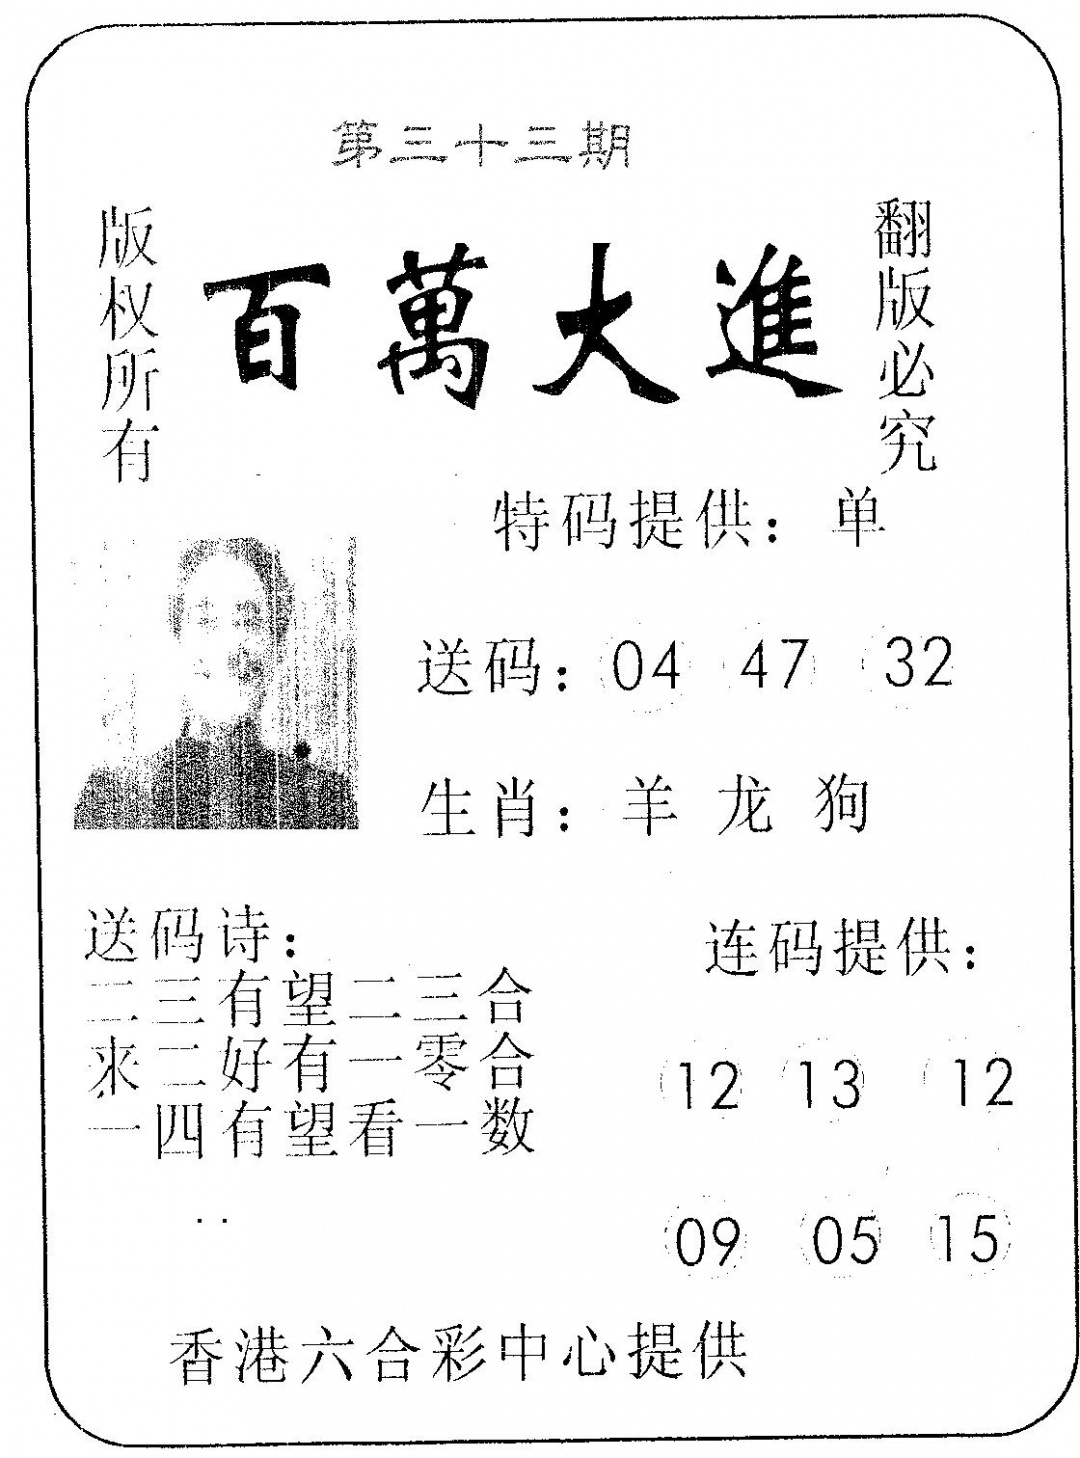 第三十三期
版权所有
百萬大進
翻版必究
特码提供：单
送码：04 47 32
生肖：羊 龙 狗
送码诗：
二三有望二三合
来二好有一零合
一四有望看一数
连码提供：
12 13 12
09 05 15
香港六合彩中心提供